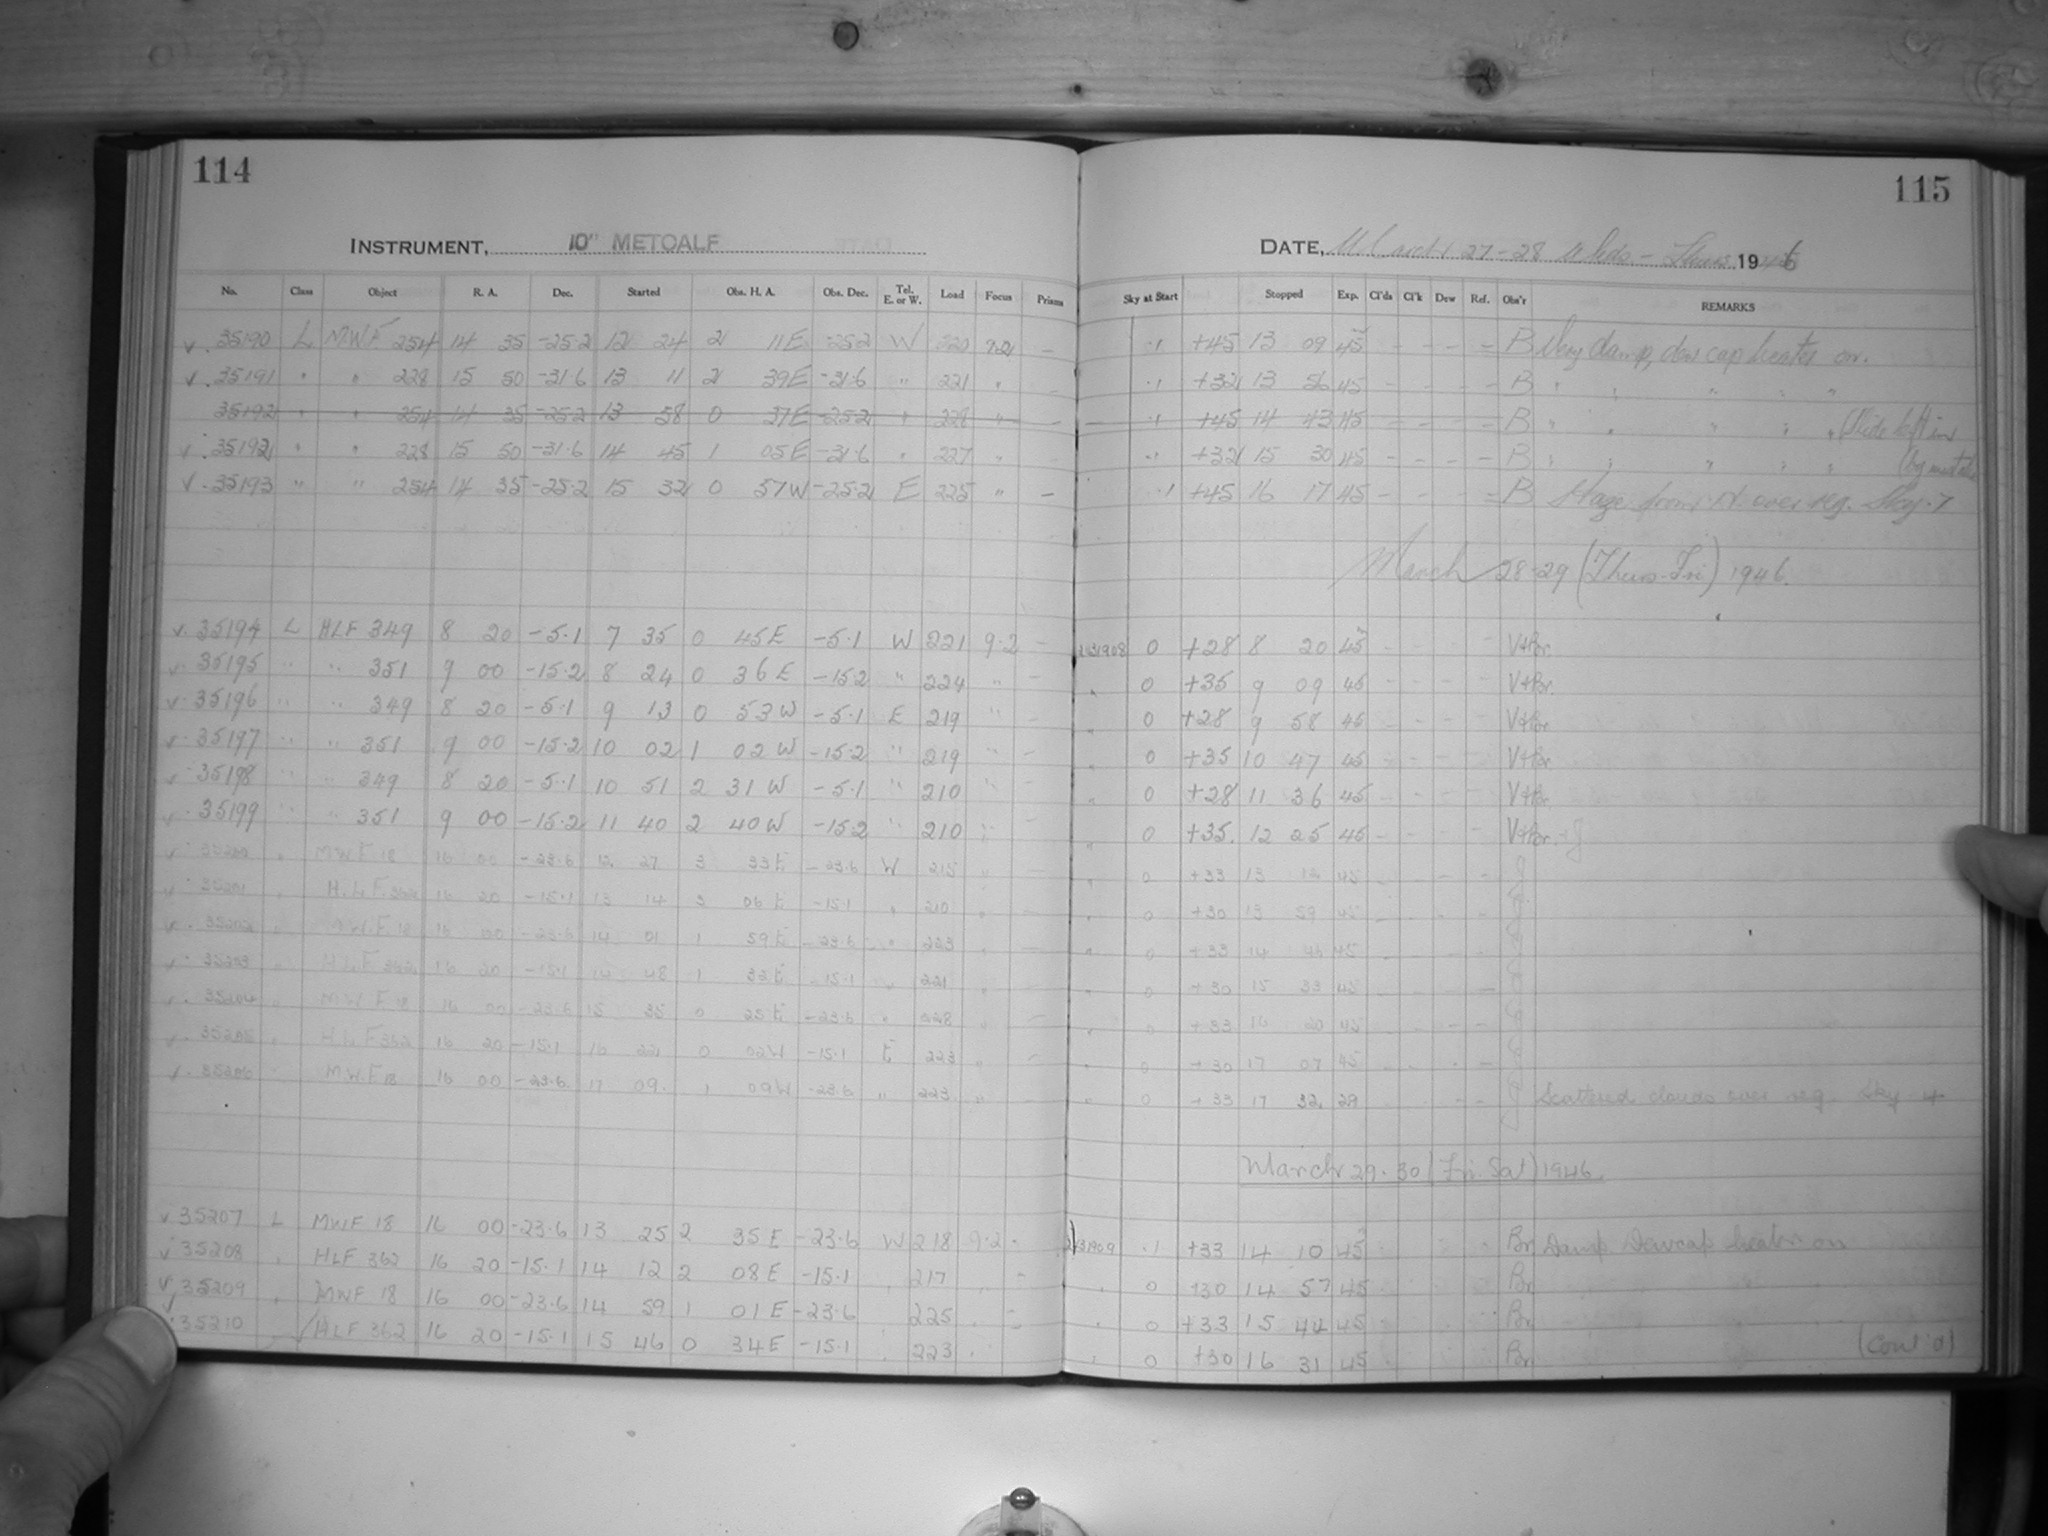 114
115
INSTRUMENT, 10" METCALF
DATE, March 27-28 Weds - Thurs 1946
No. Class Object R. A. Dec. Started Obs. H. A. Obs. Dec. Tel. E. or W. Load Focus Prism Sky at Start Stopped Exp. Cl'ds Cl'k Dew Ref. Obs'r REMARKS
v. 35190 L MWF 254 14 35 -25.2 12 24 2 11E -25.2 W 220 9.2 - .1 +45 13 09 45 - - - - B Very damp, dew cap heater on.
v. 35191 " " 228 15 50 -31.6 13 11 2 39E -31.6 " 221 " .1 +32 13 56 45 - - - - B " " " " "
35192 " " 254 14 35 -25.2 13 58 0 37E -25.2 " 228 " - .1 +45 14 43 45 - - - - B " " " " " (Slide left in
v. 35192 " " 228 15 50 -31.6 14 45 1 05E -31.6 " 227 " - .1 +32 15 30 45 - - - - B " " " " " (by mistake
v. 35193 " " 254 14 35 -25.2 15 32 0 57W -25.2 E 225 " - .1 +45 16 17 45 - - - - B Haze from N. over reg. Sky .7
March 28-29 (Thurs-Fri) 1946.
v. 35194 L HLF 349 8 20 -5.1 7 35 0 45E -5.1 W 221 9.2 - 2431908 0 +28 8 20 45 - - - - V+Br.
v. 35195 " " 351 9 00 -15.2 8 24 0 36E -15.2 " 224 " - " 0 +35 9 09 45 - - - - V+Br.
v. 35196 " " 349 8 20 -5.1 9 13 0 53W -5.1 E 219 " - " 0 +28 9 58 45 - - - - V+Br
v. 35197 " " 351 9 00 -15.2 10 02 1 02W -15.2 " 219 " - " 0 +35 10 47 45 - - - - V+Br
v. 35198 " " 349 8 20 -5.1 10 51 2 31W -5.1 " 210 " - " 0 +28 11 36 45 - - - - V+Br
v. 35199 " " 351 9 00 -15.2 11 40 2 40W -15.2 " 210 " - " 0 +35. 12 25 45 - - - - V+Br. + J
v. 35200 " MWF 18 16 00 -23.6 12 27 3 33E -23.6 W 215 " - " 0 +33 13 12 45 - - - - J
v. 35201 " H.L.F. 362 16 20 -15.1 13 14 3 06E -15.1 " 210 " - " 0 +30 13 59 45 - - - - J
v. 35202 " M.W.F. 18 16 00 -23.6 14 01 1 59E -23.6 " 223 " - " 0 +33 14 46 45 - - - - J
v. 35203 " H.L.F 362 16 20 -15.1 14 48 1 32E -15.1 " 221 " - " 0 +30 15 33 45 - - - - J
v. 35204 " M.W.F 18 16 00 -23.6 15 35 0 25E -23.6 " 228 " - " 0 +33 16 20 45 - - - - J
v. 35205 " H.L.F 362 16 20 -15.1 16 22 0 02W -15.1 E 223 " - " 0 +30 17 07 45 - - - - J
v. 35206 " M.W.F 18 16 00 -23.6 17 09. 1 09W -23.6 " 223 " - " 0 +33 17 32 23 - - - - J Scattered clouds over reg. Sky 4.
March 29-30 (Fri. Sat) 1946.
v 35207 L MWF 18 16 00 -23.6 13 25 2 35E -23.6 W 218 9.2 - 2431909 .1 +33 14 10 45 Br Damp. Dewcap heater on
v 35208 " HLF 362 16 20 -15.1 14 12 2 08E -15.1 " 217 " - " 0 +30 14 57 45 Br
v 35209 " MWF 18 16 00 -23.6 14 59 1 01E -23.6 225 " - " 0 +33 15 44 45 Br
v 35210 HLF 362 16 20 -15.1 15 46 0 34E -15.1 " 223 " " 0 +30 16 31 45 Br (Cont'd)